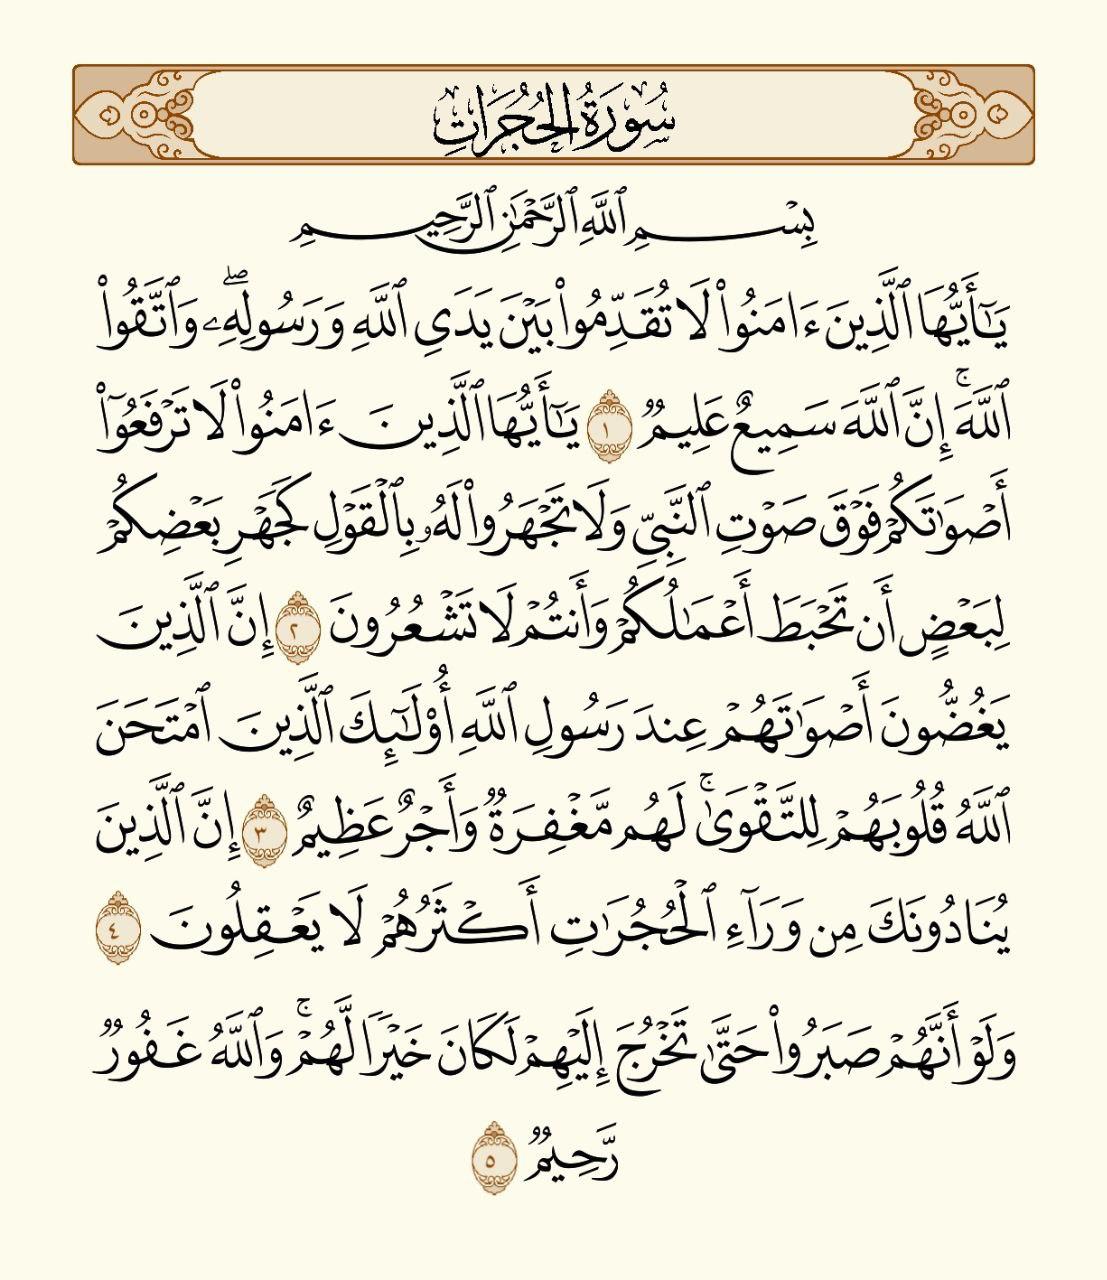 سُورَةُ الحُجُرَاتِ
بِسْمِ ٱللَّهِ ٱلرَّحْمَٰنِ ٱلرَّحِيمِ
يَٰٓأَيُّهَا ٱلَّذِينَ ءَامَنُوا۟ لَا تُقَدِّمُوا۟ بَيْنَ يَدَىِ ٱللَّهِ وَرَسُولِهِۦۖ وَٱتَّقُوا۟
ٱللَّهَۚ إِنَّ ٱللَّهَ سَمِيعٌ عَلِيمٌ ١ يَٰٓأَيُّهَا ٱلَّذِينَ ءَامَنُوا۟ لَا تَرْفَعُوٓا۟
أَصْوَٰتَكُمْ فَوْقَ صَوْتِ ٱلنَّبِىِّ وَلَا تَجْهَرُوا۟ لَهُۥ بِٱلْقَوْلِ كَجَهْرِ بَعْضِكُمْ
لِبَعْضٍ أَن تَحْبَطَ أَعْمَٰلُكُمْ وَأَنتُمْ لَا تَشْعُرُونَ ٢ إِنَّ ٱلَّذِينَ
يَغُضُّونَ أَصْوَٰتَهُمْ عِندَ رَسُولِ ٱللَّهِ أُو۟لَٰٓئِكَ ٱلَّذِينَ ٱمْتَحَنَ
ٱللَّهُ قُلُوبَهُمْ لِلتَّقْوَىٰۚ لَهُم مَّغْفِرَةٌ وَأَجْرٌ عَظِيمٌ ٣ إِنَّ ٱلَّذِينَ
يُنَادُونَكَ مِن وَرَآءِ ٱلْحُجُرَٰتِ أَكْثَرُهُمْ لَا يَعْقِلُونَ ٤
وَلَوْ أَنَّهُمْ صَبَرُوا۟ حَتَّىٰ تَخْرُجَ إِلَيْهِمْ لَكَانَ خَيْرًا لَّهُمْۚ وَٱللَّهُ غَفُورٌ
رَّحِيمٌ ٥